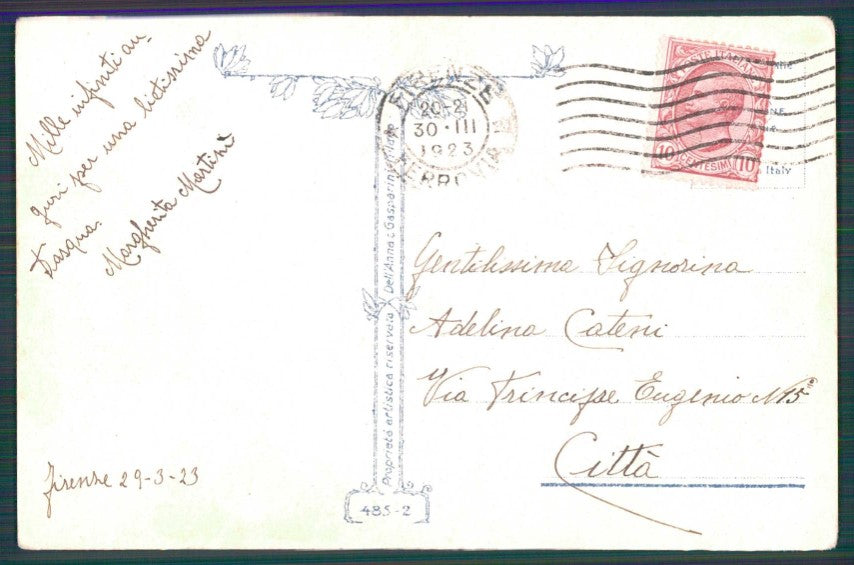 Mille infiniti au-
guri per una lietissima
Pasqua.
Margherita Martini
Firenze 29-3-23
Proprietà artistica riservata Dell'Anna & Gasparini
485-2
FIRENZE
20-21
30·III
1923
FERROVIA
POSTE ITALIANE
10 CENTESIMI 10
Italy
Gentilissima Signorina
Adelina Cateni
Via Principe Eugenio N 15
Città